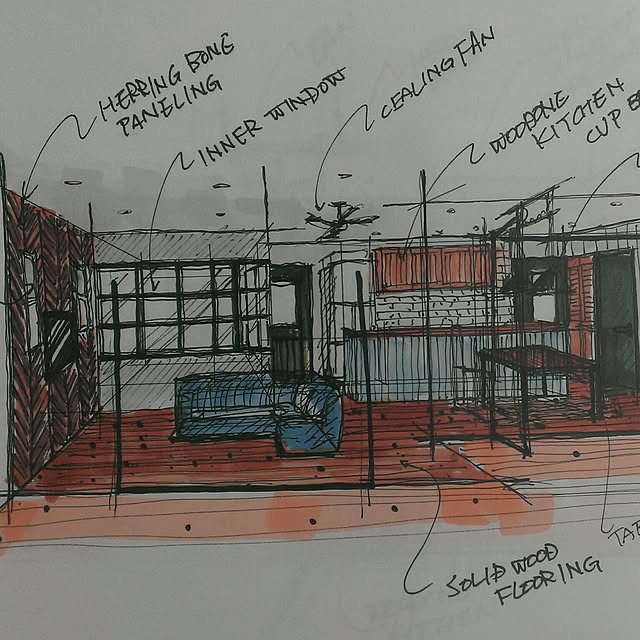 HERRING BONE
PANELING
INNER WINDOW
CEALING FAN
KITCHEN
CUP
SOLID WOOD
FLOORING